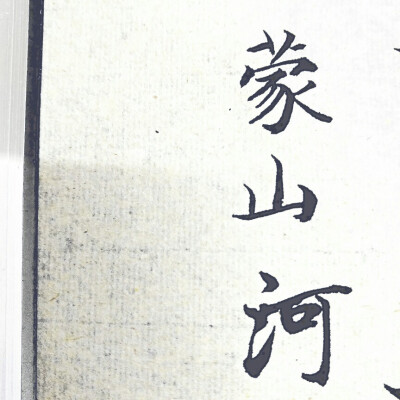 蒙山河